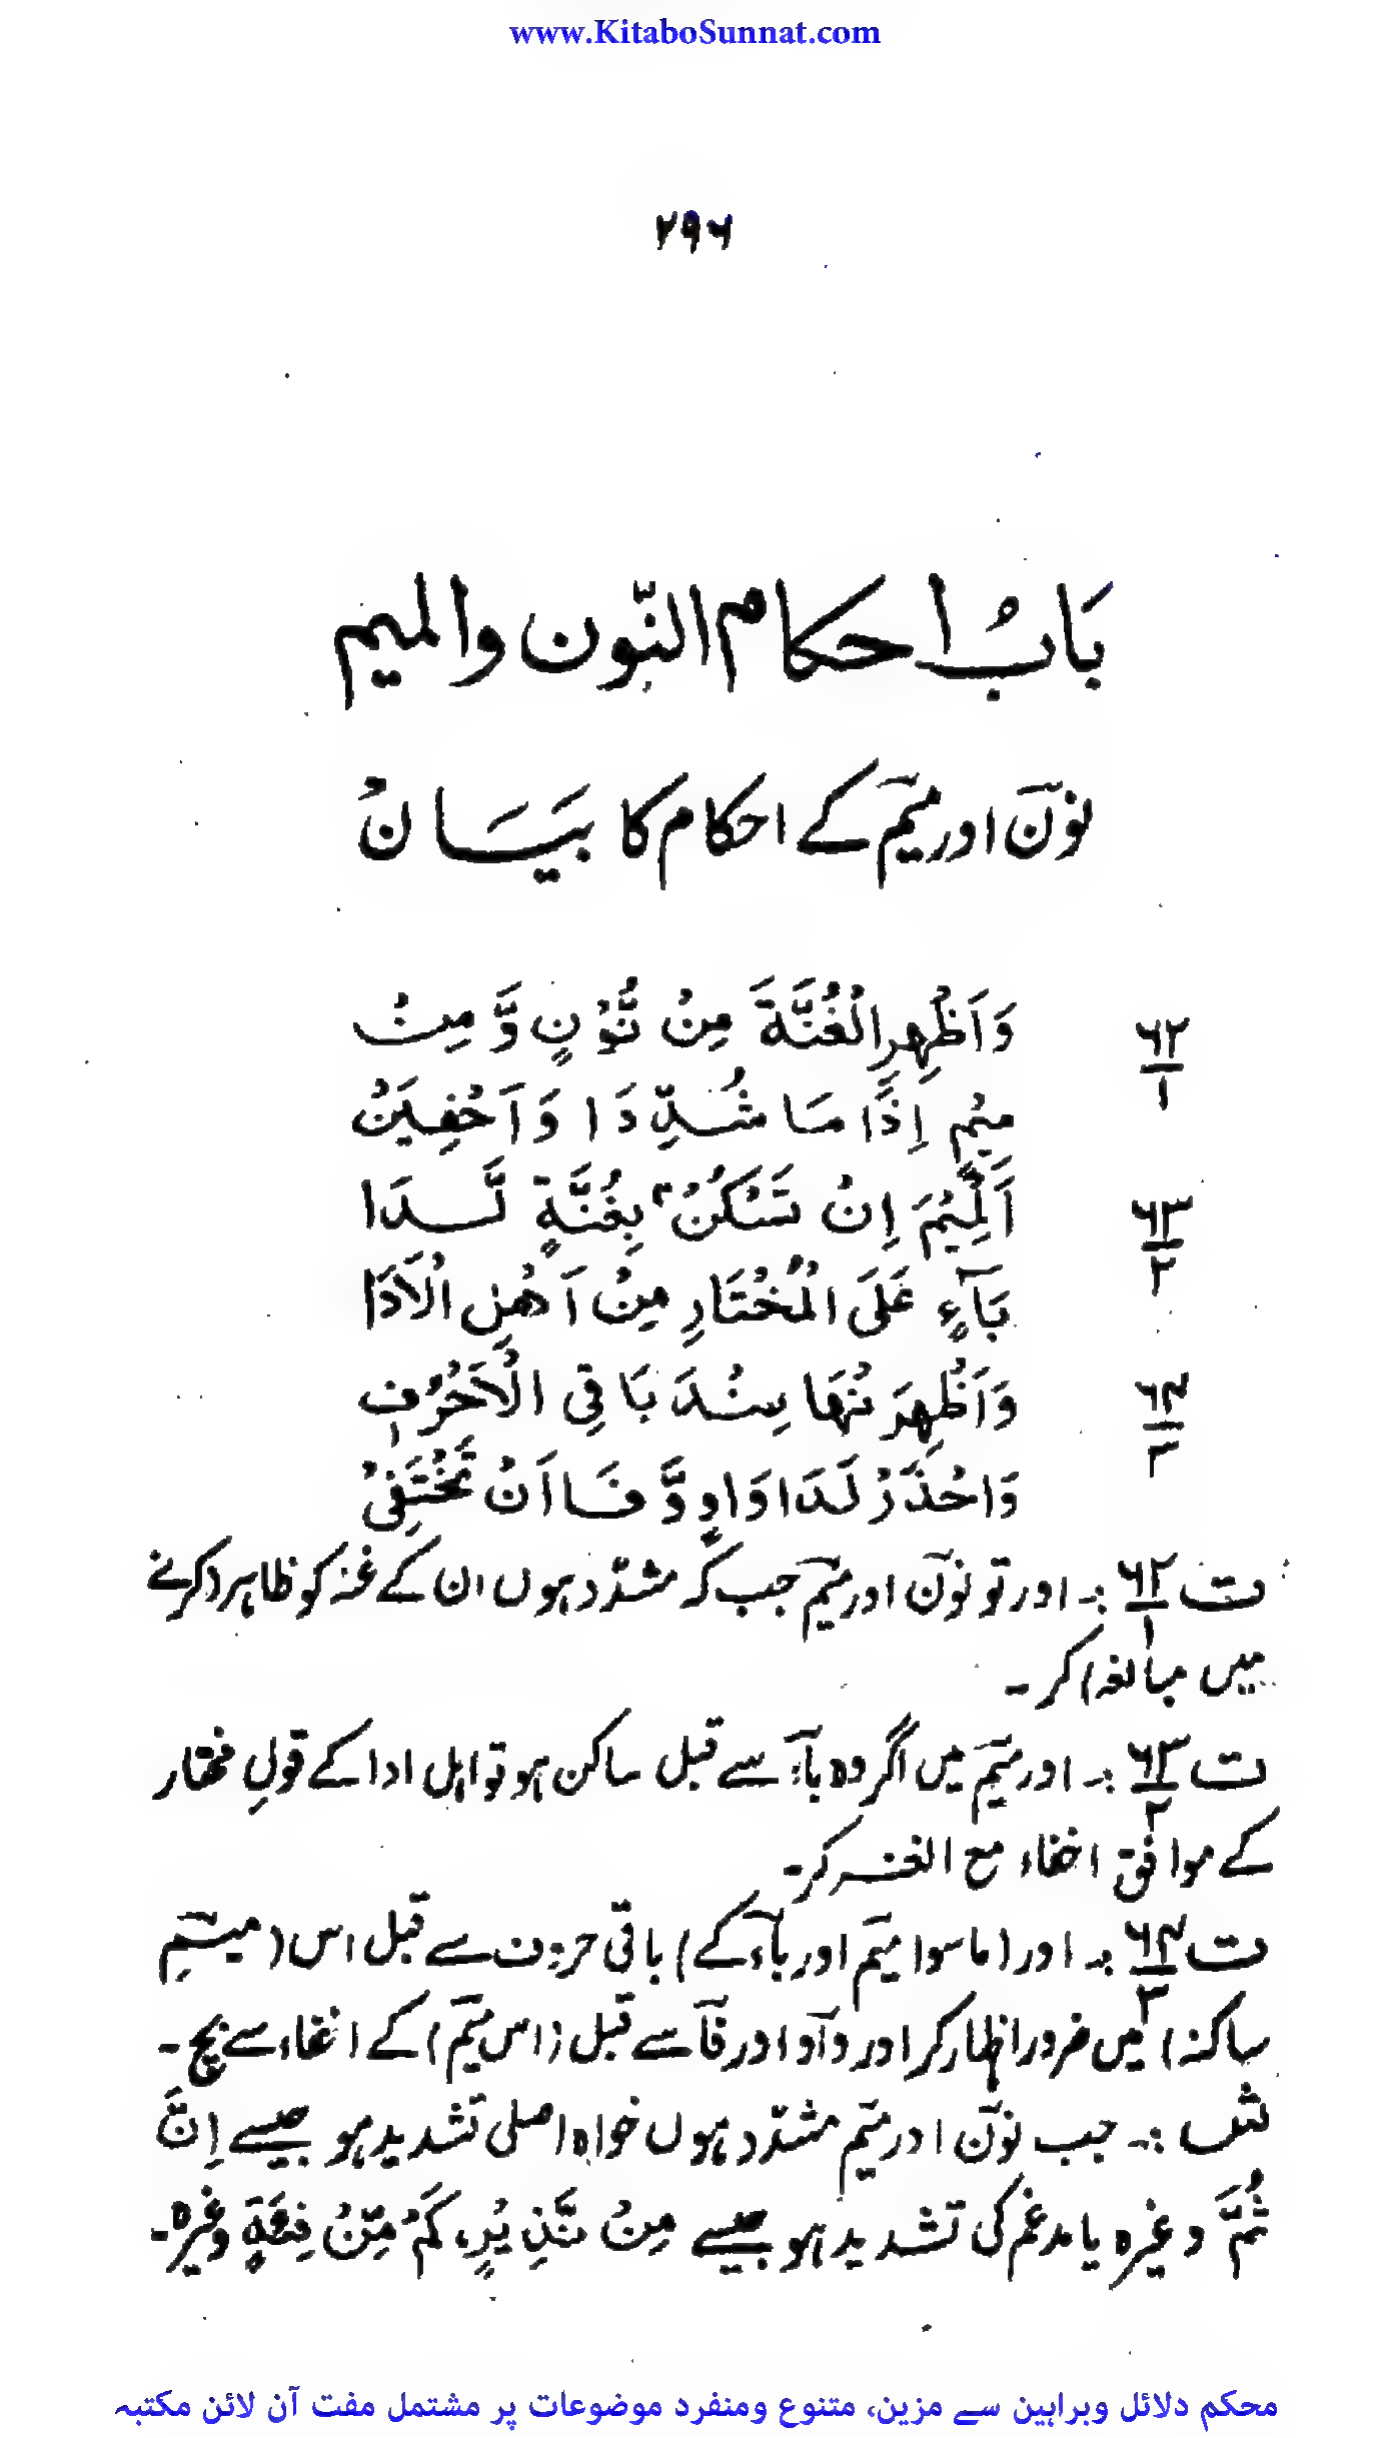 www.KitaboSunnat.com
۲۹۶
بَابُ احکام النّون والمیم
نونؔ اور میمؔ کے احکام کا بَیَانُ
۶۲/۱ وَاَظْهِرِ الْغُنَّةَ مِنْ نُّوْنٍ وَّ مِنْ
مِیْمٍ اِذَا مَا شُدِّدَا وَاَخْفِیَنْ
۶۳/۲ اَلْمِیْمَ اِنْ تَسْكُنْ ۢ بِغُنَّةٍ لَّدَا
بَآءٍ عَلَی الْمُخْتَارِ مِنْ اَهْلِ الْاَدَا
۶۴/۳ وَاَظْهِرَنْهَا عِنْدَ بَاقِی الْاَحْرُفِ
وَاحْذَرْ لَدَا وَاوٍ وَّ فَا اَنْ تَخْتَفِیْ
ت ۶۲/۱ :۔ اور تو نونؔ اور میمؔ جب کہ مشدّد ہوں ان کے غنہ کو ظاہر (کرنے
میں مبالغہ) کر ۔
ت ۶۳/۲ :۔ اور میمؔ میں اگر وہ بآء سے قبل ساکن ہو تو اہل ادا کے قولِ مختار
کے موافق اخفاء مع الغنہ کر۔
ت ۶۴/۳ :۔ اور (ماسوا میمؔ اور بآء کے) باقی حروف سے قبل اس (میمؔ
ساکنہ) میں ضرور اظہار کر اور واؔو اور فاؔ سے قبل (اس میمؔ) کے اخفاء سے بچ ۔
ش :۔ جب نونؔ اور میمؔ مشدّد ہوں خواہ اصلی تشدید ہو جیسے اِنَّ
ثُمَّ وغیرہ یا مدغم کی تشدید ہو جیسے مِنْ نَّذِیْرٍ، كَمْ مِّنْ فِئَةٍ وغیرہ۔
محکم دلائل وبراہین سے مزین، متنوع ومنفرد موضوعات پر مشتمل مفت آن لائن مکتبہ